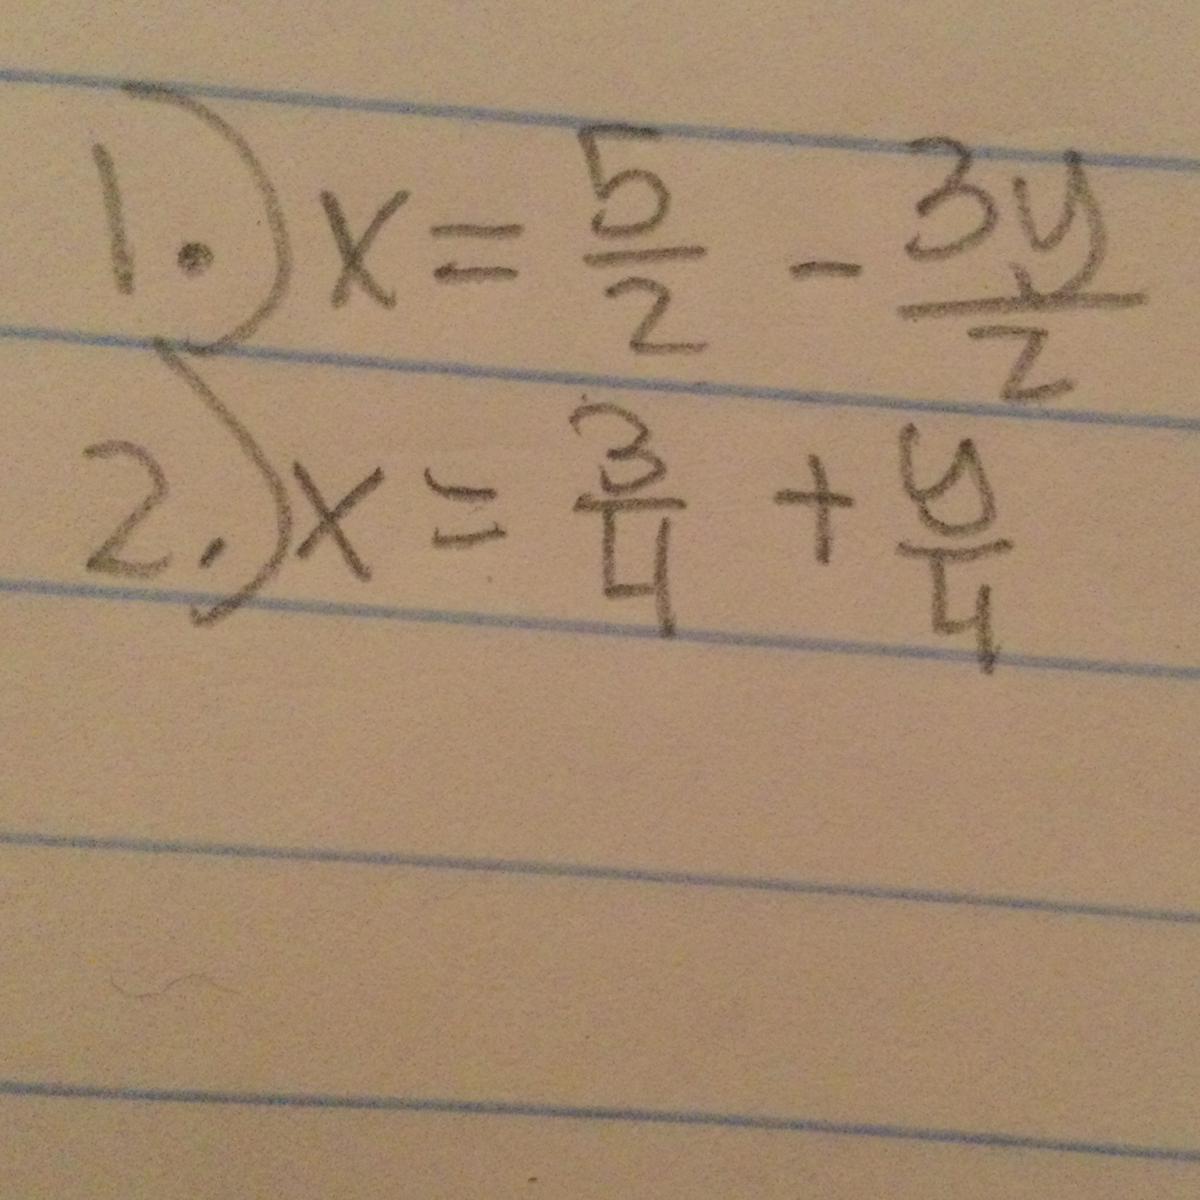 1.) x = 5/2 - 3y/2
2.) x = 3/4 + y/4